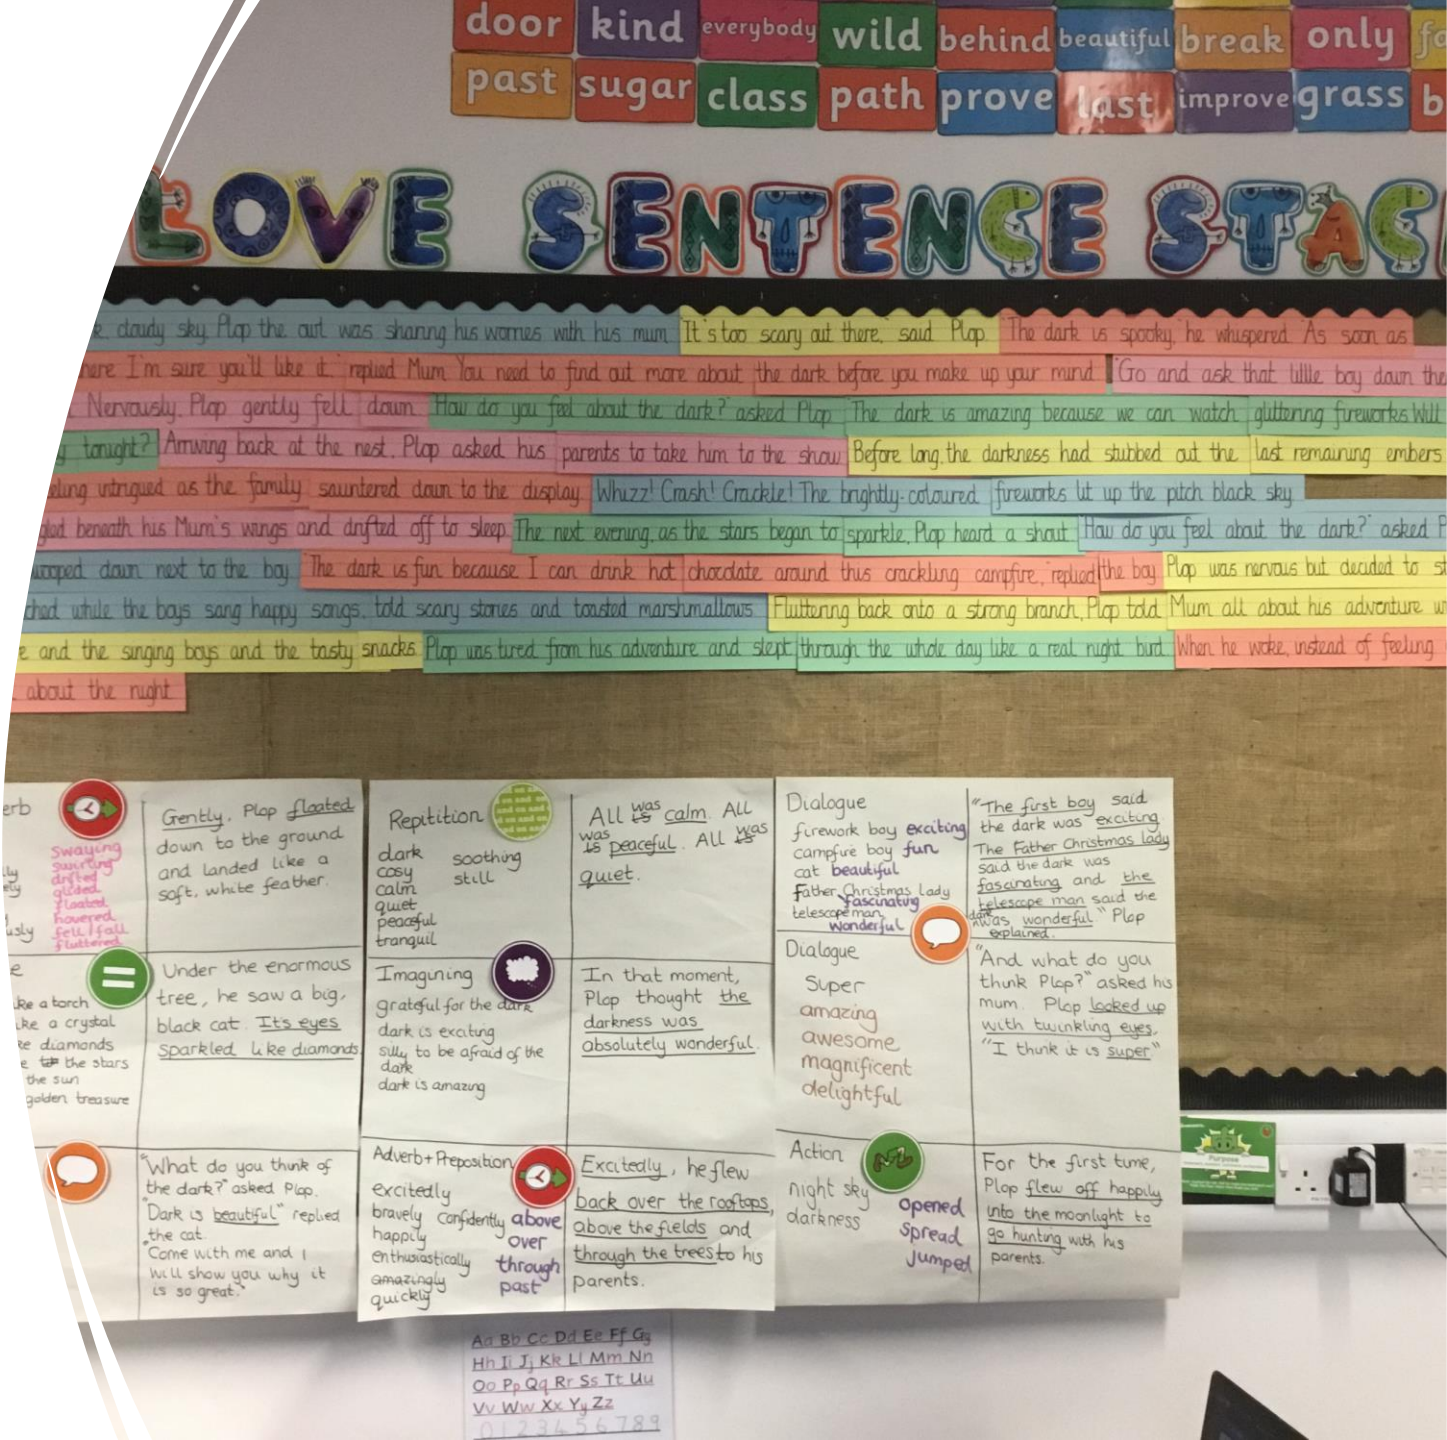 door kind everybody wild behind beautiful break only
past sugar class path prove last improve grass b
LOVE SENTENCE STAC
cloudy sky. Plop the owl was sharing his worries with his mum. "It's too scary out there," said Plop. "The dark is spooky," he whispered. "As soon as
here I'm sure you'll like it," replied Mum. You need to find out more about the dark before you make up your mind. "Go and ask that little boy down the
Nervously, Plop gently fell down. "How do you feel about the dark?" asked Plop. "The dark is amazing because we can watch glittering fireworks. Will
y tonight?" Arriving back at the nest, Plop asked his parents to take him to the show. Before long, the darkness had stubbed out the last remaining embers
eling intrigued as the family sauntered down to the display. Whizz! Crash! Crackle! The brightly-coloured fireworks lit up the pitch black sky.
gled beneath his Mum's wings and drifted off to sleep. The next evening, as the stars began to sparkle, Plop heard a shout. "How do you feel about the dark?" asked P
wooped down next to the boy. "The dark is fun because I can drink hot chocolate around this crackling campfire," replied the boy. Plop was nervous but decided to st
ched while the boys sang happy songs, told scary stories and toasted marshmallows. Fluttering back onto a strong branch, Plop told Mum all about his adventure w
e and the singing boys and the tasty snacks. Plop was tired from his adventure and slept through the whole day like a real night bird. When he woke, instead of feeling
about the night
erb
swaying
swirling
drifted
glided
floated
hovered
fell/fall
fluttered
ly
ely
usly
Gently, Plop floated
down to the ground
and landed like a
soft, white feather.
e
ke a torch
ke a crystal
ke diamonds
e the stars
the sun
golden treasure
Under the enormous
tree, he saw a big,
black cat. It's eyes
sparkled like diamonds.
"What do you think of
the dark?" asked Plop.
"Dark is beautiful" replied
the cat.
"Come with me and I
will show you why it
is so great."
Repitition
dark
cosy
calm
quiet
peaceful
tranquil
soothing
still
All is was calm. All
is was peaceful. All is was
quiet.
Imagining
grateful for the dark
dark is exciting
silly to be afraid of the
dark
dark is amazing
In that moment,
Plop thought the
darkness was
absolutely wonderful.
Adverb+Preposition
excitedly
bravely confidently
happily
enthusiastically
amazingly
quickly
above
over
through
past
Excitedly, he flew
back over the rooftops,
above the fields and
through the trees to his
parents.
Dialogue
firework boy exciting
campfire boy fun
cat beautiful
Father Christmas lady
fascinating
telescope man
wonderful
"The first boy said
the dark was exciting.
The Father Christmas lady
said the dark was
fascinating and the
telescope man said the
dark was wonderful" Plop
explained.
Dialogue
Super
amazing
awesome
magnificent
delightful
"And what do you
think Plop?" asked his
mum. Plop looked up
with twinkling eyes,
"I think it is super"
Action
night sky
darkness
opened
spread
jumped
For the first time,
Plop flew off happily
into the moonlight to
go hunting with his
parents.
Purpose
Aa Bb Cc Dd Ee Ff Gg
Hh Ii Jj Kk Ll Mm Nn
Oo Pp Qq Rr Ss Tt Uu
Vv Ww Xx Yy Zz
0123456789